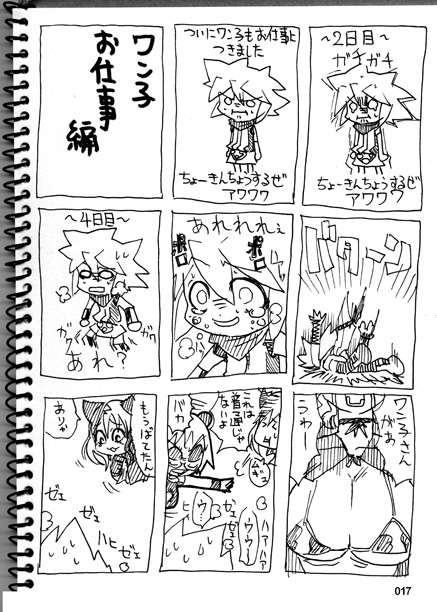 ワン子
お仕事
編
ついにワン子もお仕事に
つきました
ちょーきんちょうするぜ
アワワワ
～2日目～
ガチガチ
ちょーきんちょうするぜ
アワワワ
～4日目～
ガク
ガク
あれ？
あれれれぇ
ポロ
ポロ
バターン
もうばてたん
おりゃ
ゼェ
ゼェ
ゼェ
ハヒ
ゼェ
これは
普通じゃ
ないよ
バカ
ムギュ
ハァハァ
ウ～ウ～
ヒ～
ワン子さん
がぁ
うわー
017